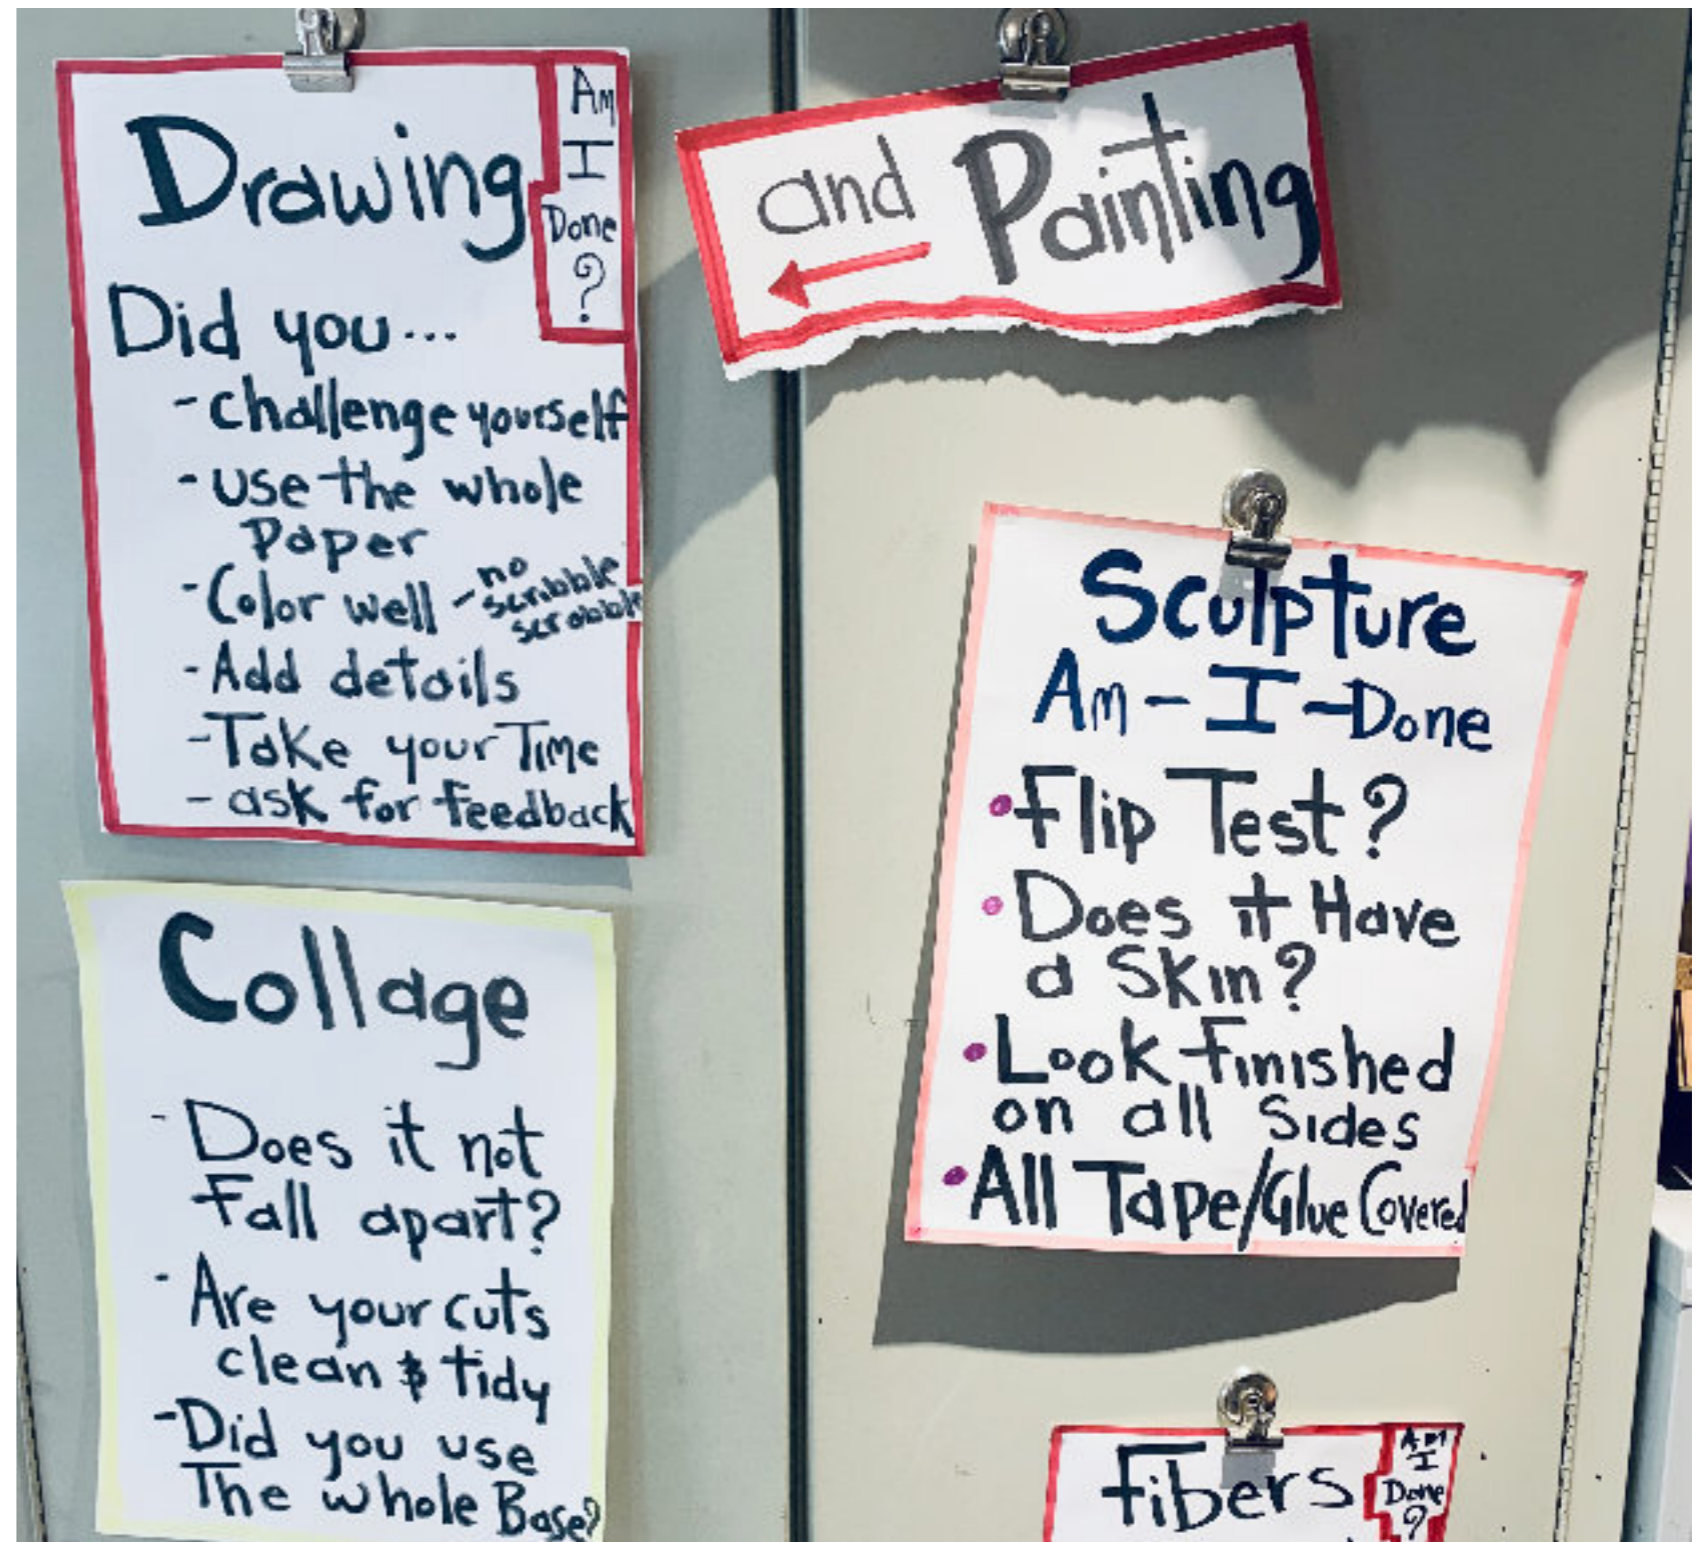 Drawing
Am
I
Done
?
Did you...
- challenge yourself
- use the whole
Paper
- Color well - no
scribble
scrobble
- Add details
- Take your Time
- ask for feedback
and Painting
Collage
- Does it not
Fall apart?
- Are your cuts
clean & tidy
- Did you use
The whole Base?
Sculpture
Am-I-Done
• Flip Test?
• Does it Have
a Skin?
• Look finished
on all Sides
• All Tape/Glue Covered
Fibers
Am
I
Done
?